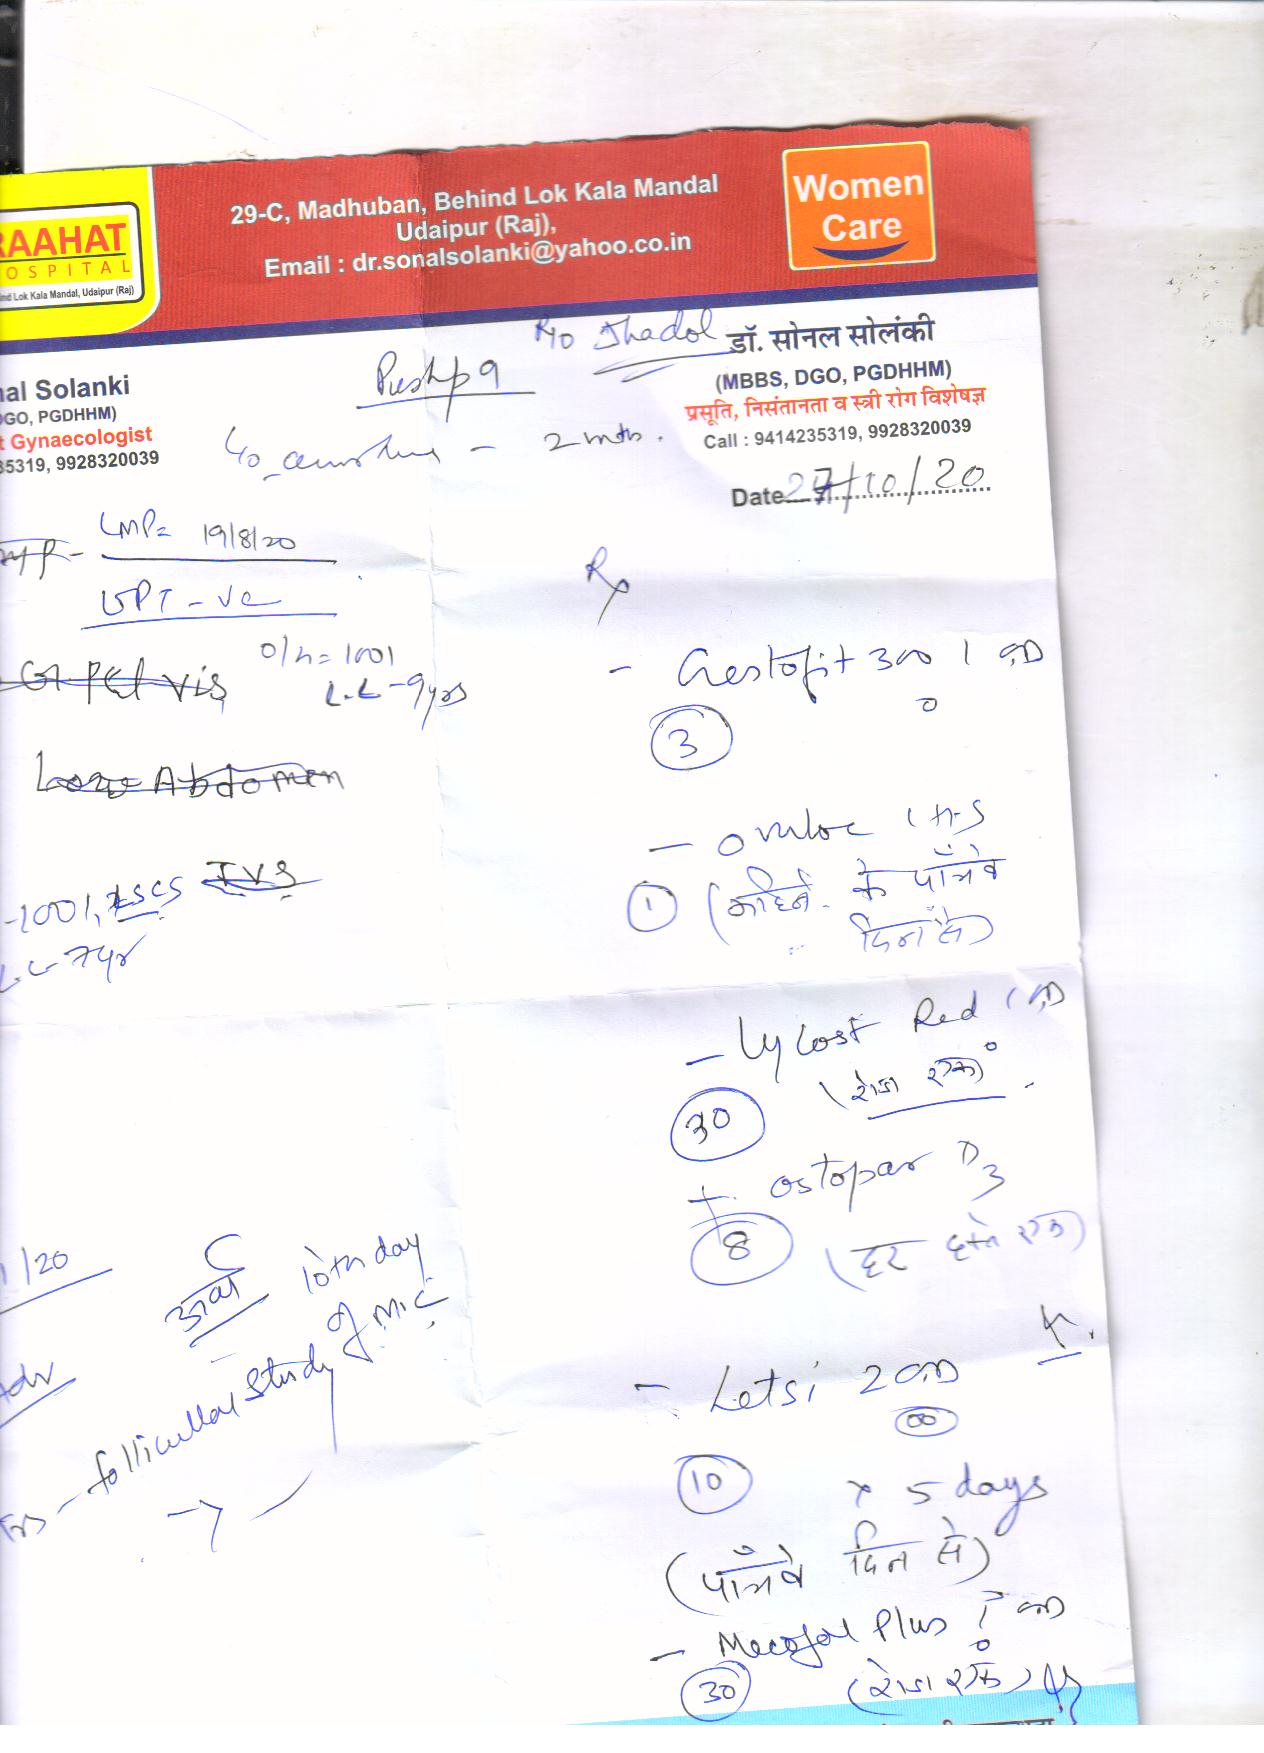 29-C, Madhuban, Behind Lok Kala Mandal
Udaipur (Raj),
Email : dr.sonalsolanki@yahoo.co.in
Women
Care
RAAHAT
HOSPITAL
ind Lok Kala Mandal, Udaipur (Raj)
R/o Jhadol
डॉ. सोनल सोलंकी
(MBBS, DGO, PGDHHM)
प्रसूति, निसंतानता व स्त्री रोग विशेषज्ञ
Call : 9414235319, 9928320039
Date 27/10/20
nal Solanki
DGO, PGDHHM)
t Gynaecologist
35319, 9928320039
Pushpa
- 2 mth.
LMP= 19/8/20
UPT -ve
O/H = 1001
L.L - 9 yrs
Pelvis
Abdomen
-1001, LSCS
7 yr
Rx
- Gestofit 300 1 OD
3
- Ovuloc 1 HS
1 (महिने के पाँचवे
दिन से)
- Lycost Red 1 OD
30 (रोज एक)
+ Ostopar D3
8 (हर हफ्ते एक)
- Letsi 2 OD
10 x 5 days
(पाँचवे दिन से)
- Mecofol Plus 1 OD
30 (रोज एक)
/20
Adv
10th day
of M.C.
follicular study